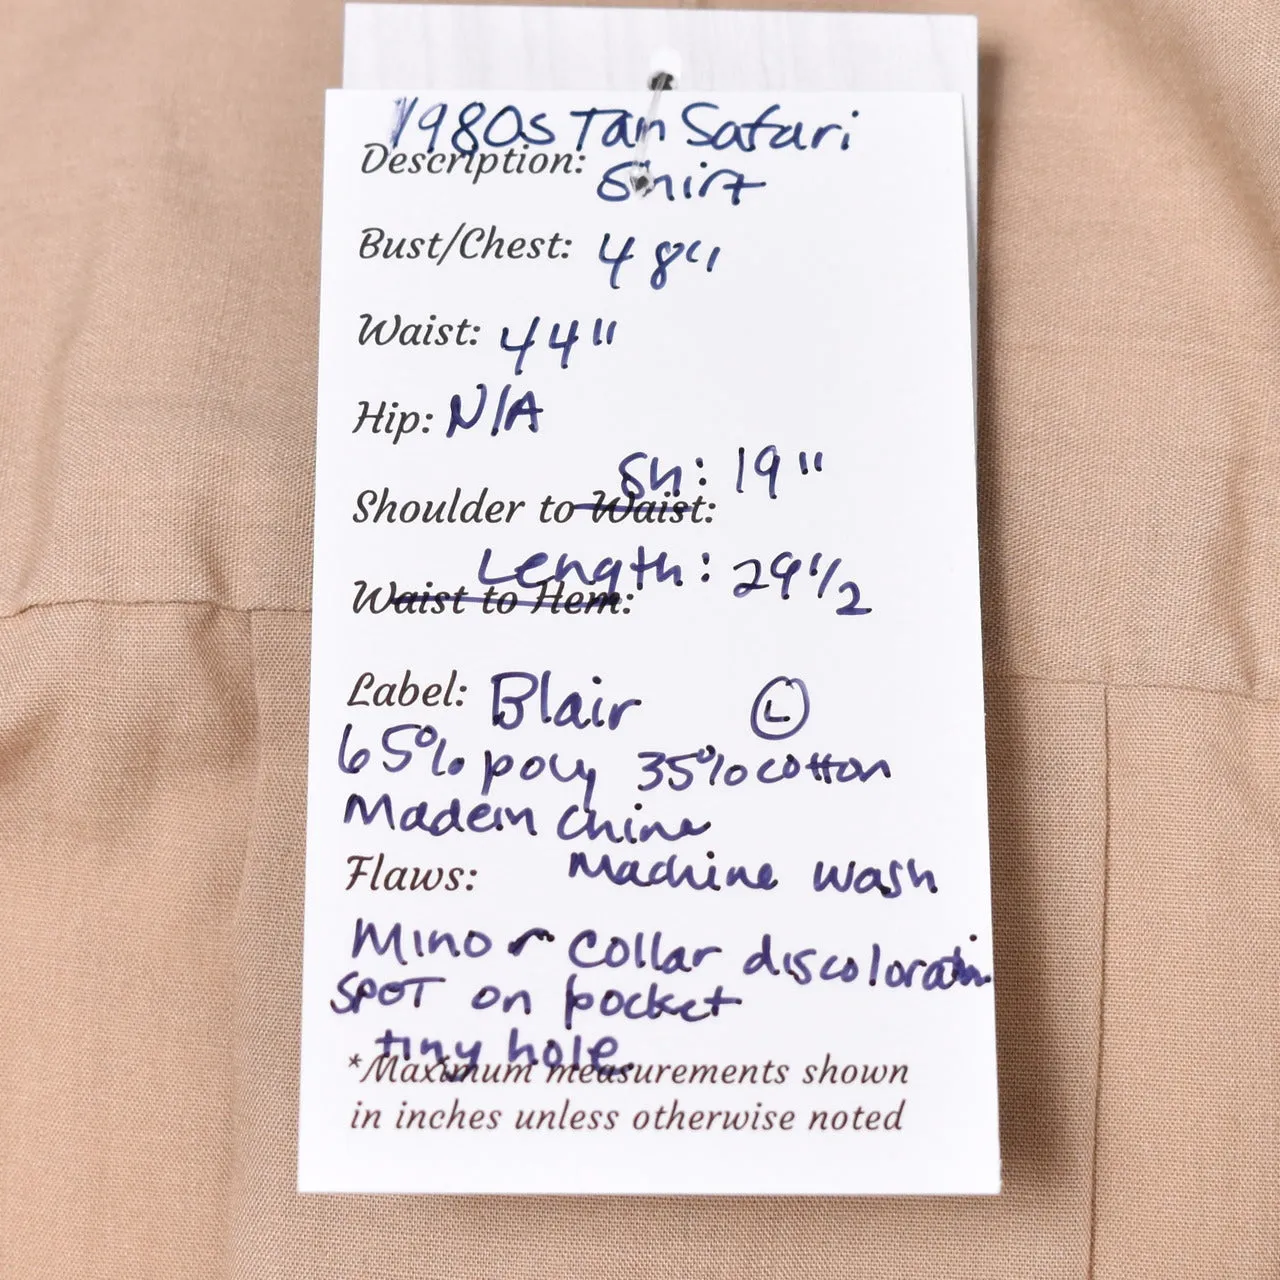 1980s Tan Safari
Description: Shirt
Bust/Chest: 48"
Waist: 44"
Hip: N/A
Sh: 19"
Shoulder to Waist:
Length: 29 1/2
Waist to Hem:
Label: Blair L
65% poly 35% cotton
Made in China
Flaws: Machine wash
Minor collar discoloration
SPOT on pocket
tiny hole
*Maximum measurements shown
in inches unless otherwise noted